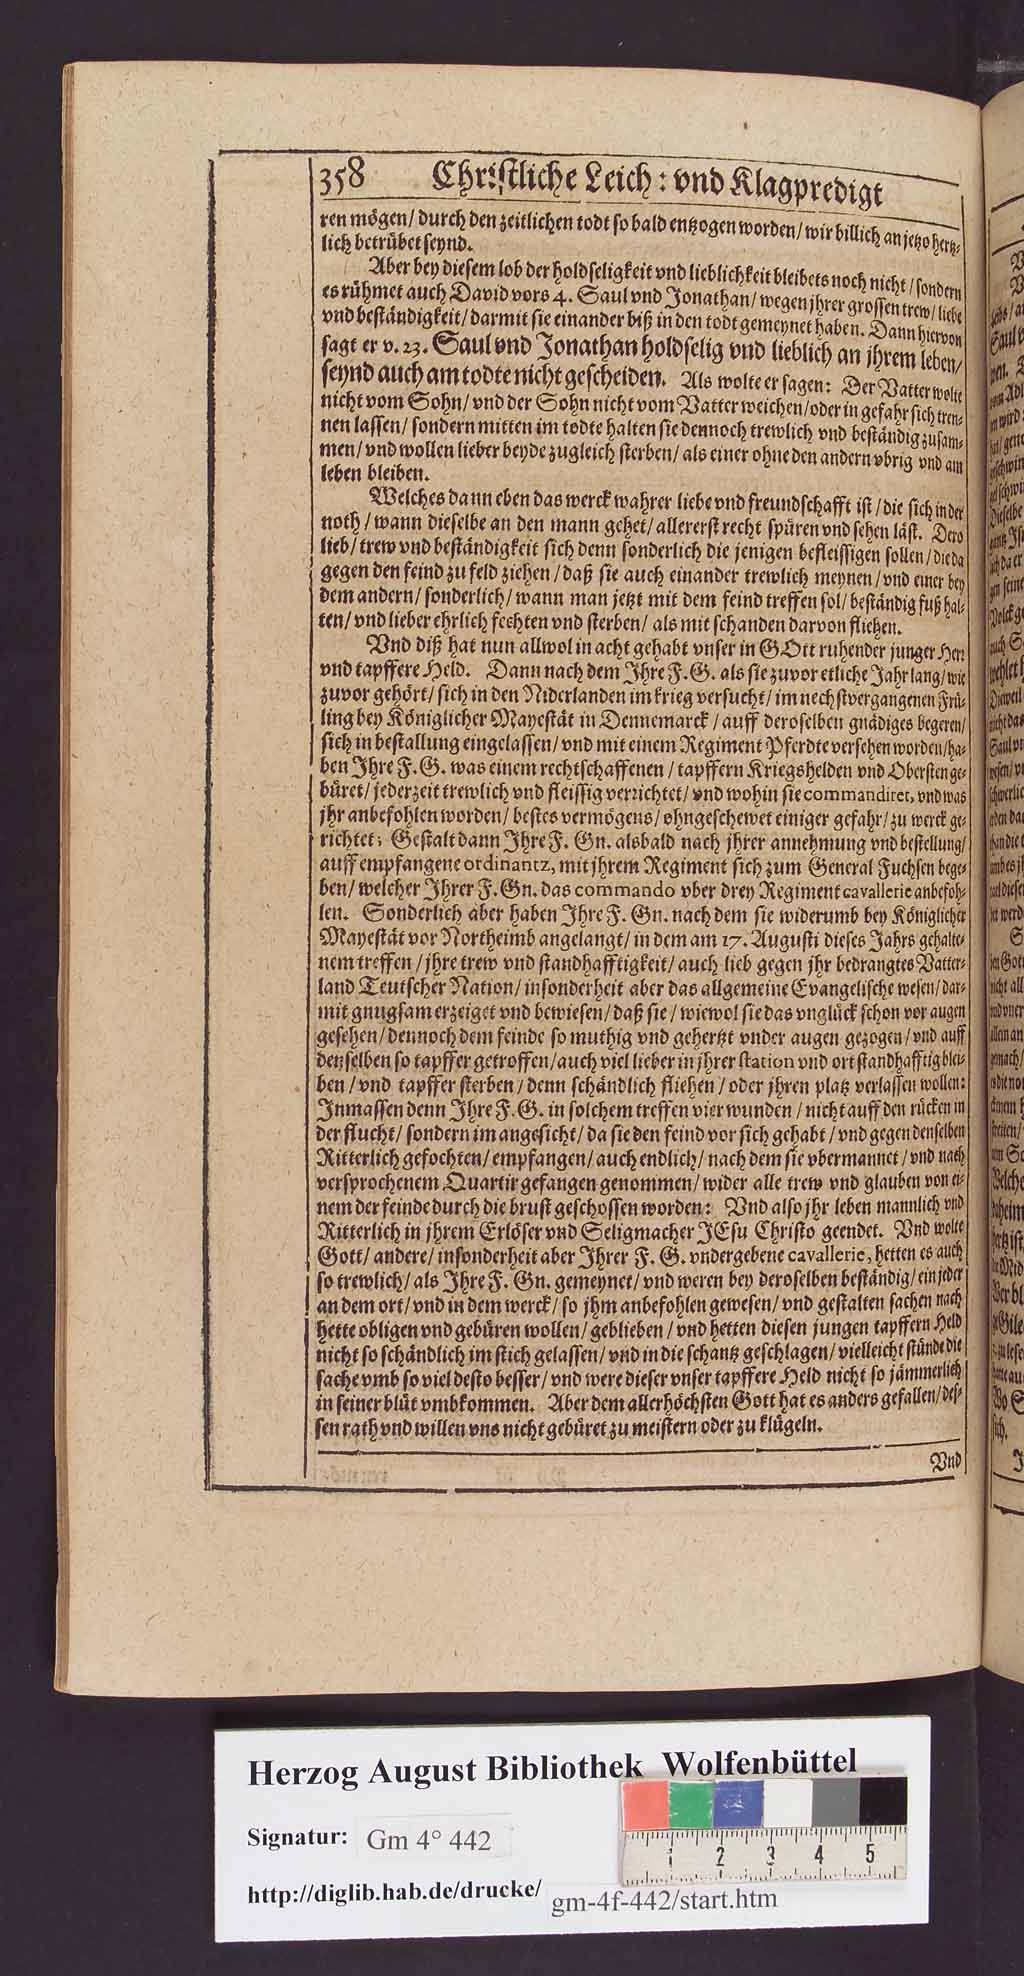 358 Christliche Leich: vnd Klagpredigt
ren mögen/ durch den zeitlichen todt so bald entzogen worden/ wir billich an jetzo hertz-
lich betrübet seynd.
Aber bey diesem lob der holdseligkeit vnd lieblichkeit bleibets noch nicht/ sondern
es rühmet auch David vors 4. Saul vnd Jonathan/ wegen jhrer grossen trew/ liebe
vnd beständigkeit/ darmit sie einander biß in den todt gemeynet haben. Dann hiervon
sagt er v. 23. Saul vnd Jonathan holdselig vnd lieblich an jhrem leben/
seynd auch am todte nicht gescheiden. Als wolte er sagen: Der Vatter wolte
nicht vom Sohn/ vnd der Sohn nicht vom Vatter weichen/ oder in gefahr sich tren-
nen lassen/ sondern mitten im todte halten sie dennoch trewlich vnd beständig zusam-
men/ vnd wollen lieber beyde zugleich sterben/ als einer ohne den andern vbrig vnd am
leben bleiben.
Welches dann eben das werck wahrer liebe vnd freundschafft ist/ die sich in der
noth/ wann dieselbe an den mann gehet/ allererst recht spüren vnd sehen läst. Dero
lieb/ trew vnd beständigkeit sich denn sonderlich die jenigen befleissigen sollen/ die da
gegen den feind zu feld ziehen/ daß sie auch einander trewlich meynen/ vnd einer bey
dem andern/ sonderlich/ wann man jetzt mit dem feind treffen sol/ beständig fuß hal-
ten/ vnd lieber ehrlich fechten vnd sterben/ als mit schanden darvon fliehen.
Vnd diß hat nun allwol in acht gehabt vnser in GOtt ruhender junger Herr
vnd tapffere Held. Dann nach dem Ihre F. G. als sie zuvor etliche Jahr lang/ wie
zuvor gehört/ sich in den Niderlanden im krieg versucht/ im nechstvergangenen Frü-
ling bey Königlicher Mayestät in Dennemarck/ auff deroselben gnädiges begeren/
sich in bestallung eingelassen/ vnd mit einem Regiment Pferdte versehen worden/ ha-
ben Ihre F. G. was einem rechtschaffenen/ tapffern Kriegshelden vnd Obersten ge-
büret/ jederzeit trewlich vnd fleissig verrichtet/ vnd wohin sie commandiret, vnd was
jhr anbefohlen worden/ bestes vermögens/ ohngeschewet einiger gefahr/ zu werck ge-
richtet; Gestalt dann Ihre F. Gn. alsbald nach jhrer annehmung vnd bestellung/
auff empfangene ordinantz, mit jhrem Regiment sich zum General Fuchsen bege-
ben/ welcher Ihrer F. Gn. das commando vber drey Regiment cavallerie anbefoh-
len. Sonderlich aber haben Ihre F. Gn. nach dem sie widerumb bey Königlicher
Mayestät vor Northeimb angelangt/ in dem am 17. Augusti dieses Jahrs gehalte-
nem treffen/ jhre trew vnd standhafftigkeit/ auch lieb gegen jhr bedrangtes Vatter-
land Teutscher Nation/ insonderheit aber das allgemeine Evangelische wesen/ dar-
mit gnugsam erzeiget vnd bewiesen/ daß sie/ wiewol sie das vnglück schon vor augen
gesehen/ dennoch dem feinde so muthig vnd gehertzt vnder augen gezogen/ vnd auff
denselben so tapffer getroffen/ auch viel lieber in jhrer station vnd ort standhafftig blei-
ben/ vnd tapffer sterben/ denn schändlich fliehen/ oder jhren platz verlassen wollen:
Inmassen denn Ihre F. G. in solchem treffen vier wunden/ nicht auff den rücken in
der flucht/ sondern im angesicht/ da sie den feind vor sich gehabt/ vnd gegen denselben
Ritterlich gefochten/ empfangen/ auch endlich/ nach dem sie vbermannet/ vnd nach
versprochenem Quartir gefangen genommen/ wider alle trew vnd glauben von ei-
nem der feinde durch die brust geschossen worden: Vnd also jhr leben mannlich vnd
Ritterlich in jhrem Erlöser vnd Seligmacher JEsu Christo geendet. Vnd wolte
Gott/ andere/ insonderheit aber Ihrer F. G. vndergebene cavallerie, hetten es auch
so trewlich/ als Ihre F. Gn. gemeynet/ vnd weren bey deroselben beständig/ ein jeder
an dem ort/ vnd in dem werck/ so jhm anbefohlen gewesen/ vnd gestalten sachen nach
hette obligen vnd gebüren wollen/ geblieben/ vnd hetten diesen jungen tapffern Held
nicht so schändlich im stich gelassen/ vnd in die schantz geschlagen/ vielleicht stünde die
sache vmb so viel desto besser/ vnd were dieser vnser tapffere Held nicht so jämmerlich
in seiner blüt vmbkommen. Aber dem allerhöchsten Gott hat es anders gefallen/ des-
sen rath vnd willen vns nicht gebüret zu meistern oder zu klügeln.
Vnd
Herzog August Bibliothek Wolfenbüttel
Signatur: Gm 4° 442
http://diglib.hab.de/drucke/ gm-4f-442/start.htm
1 2 3 4 5